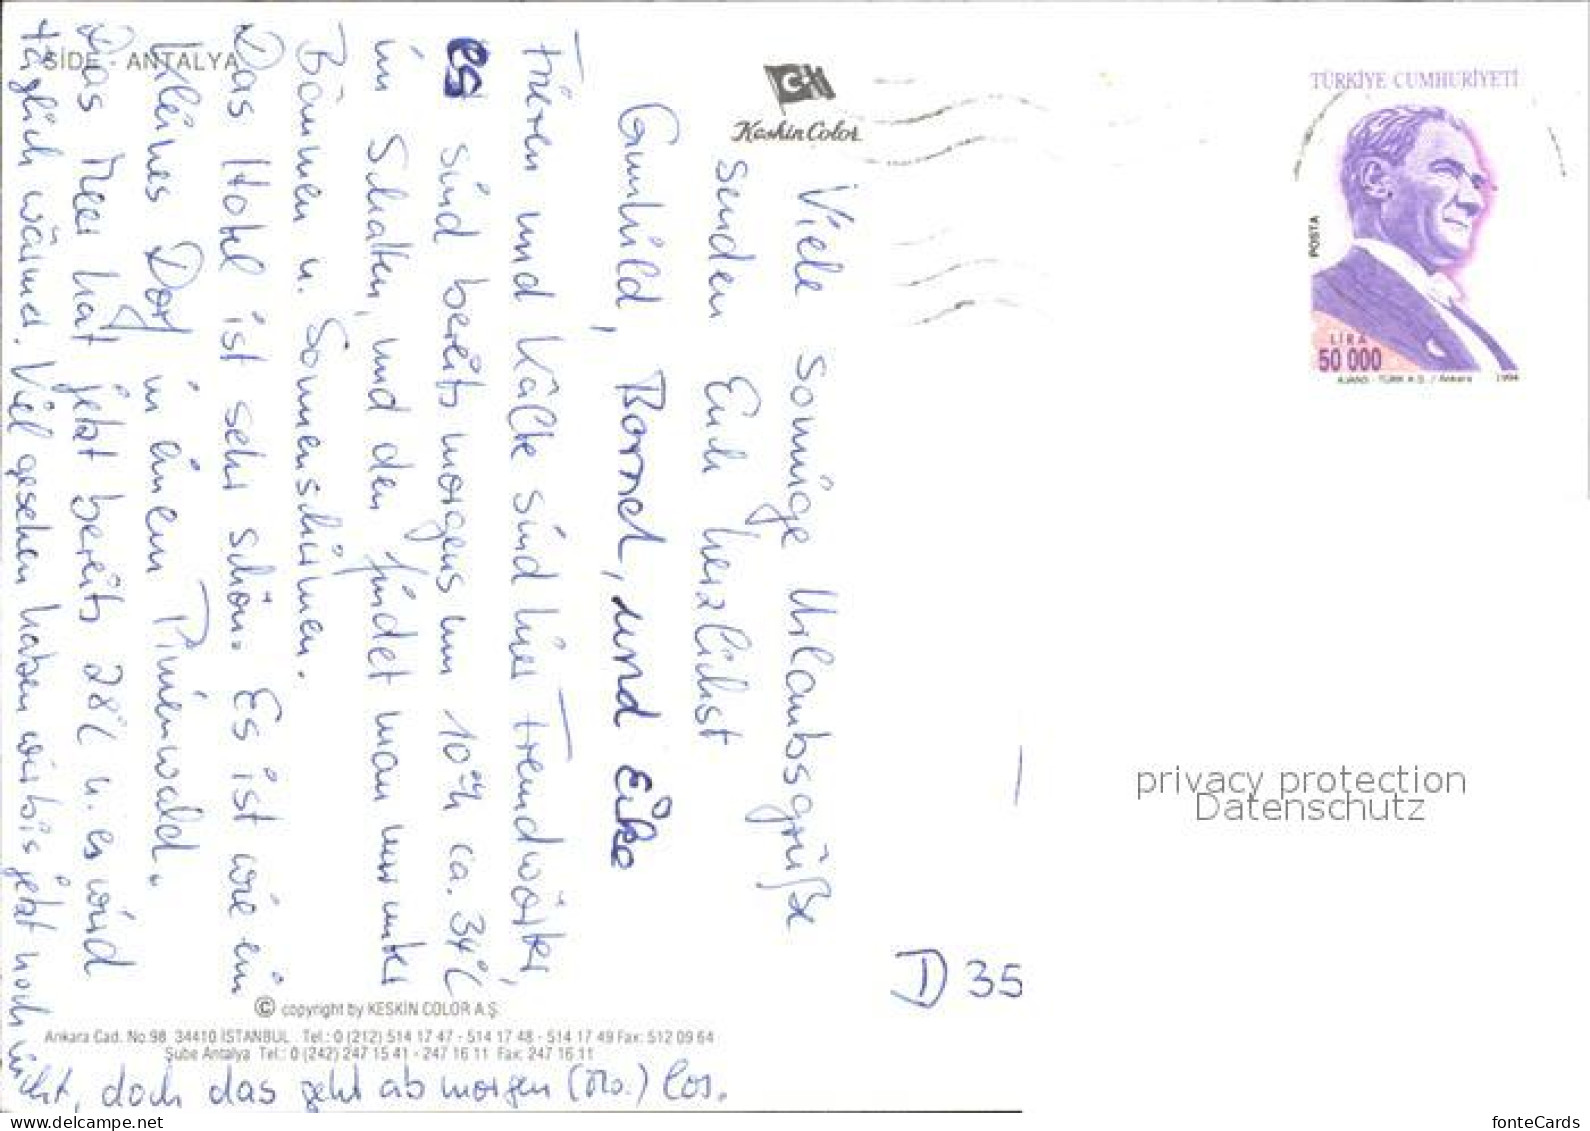 SİDE - ANTALYA
Keskin Color
TÜRKİYE CUMHURİYETİ
POSTA
LİRA
50 000
AJANS - TÜRK A.Ş. / Ankara 1994
Viele sonnige Urlaubsgrüße
senden Euch herzlichst
Gunhild, Bernd, und Eike
Frieren und Kälte sind hier Fremdwörter,
es sind bereits morgens um 10°° h ca. 34°C
im Schatten, und den findet man nur unter
Bäumen u. Sonnenschirmen.
Das Hotel ist sehr schön. Es ist wie ein
kleines Dorf in einem Pinienwald.
Das Meer hat jetzt bereits 28°C u. es wird
täglich wärmer. Viel gesehen haben wir bis jetzt noch
nicht, doch das geht ab morgen (Mo.) los.
D 35
privacy protection
Datenschutz
© copyright by KESKİN COLOR A.Ş.
Ankara Cad. No.98 34410 İSTANBUL Tel.: 0 (212) 514 17 47 - 514 17 48 - 514 17 49 Fax: 512 09 64
Şube Antalya Tel.: 0 (242) 247 15 41 - 247 16 11 Fax: 247 16 11
fonteCards